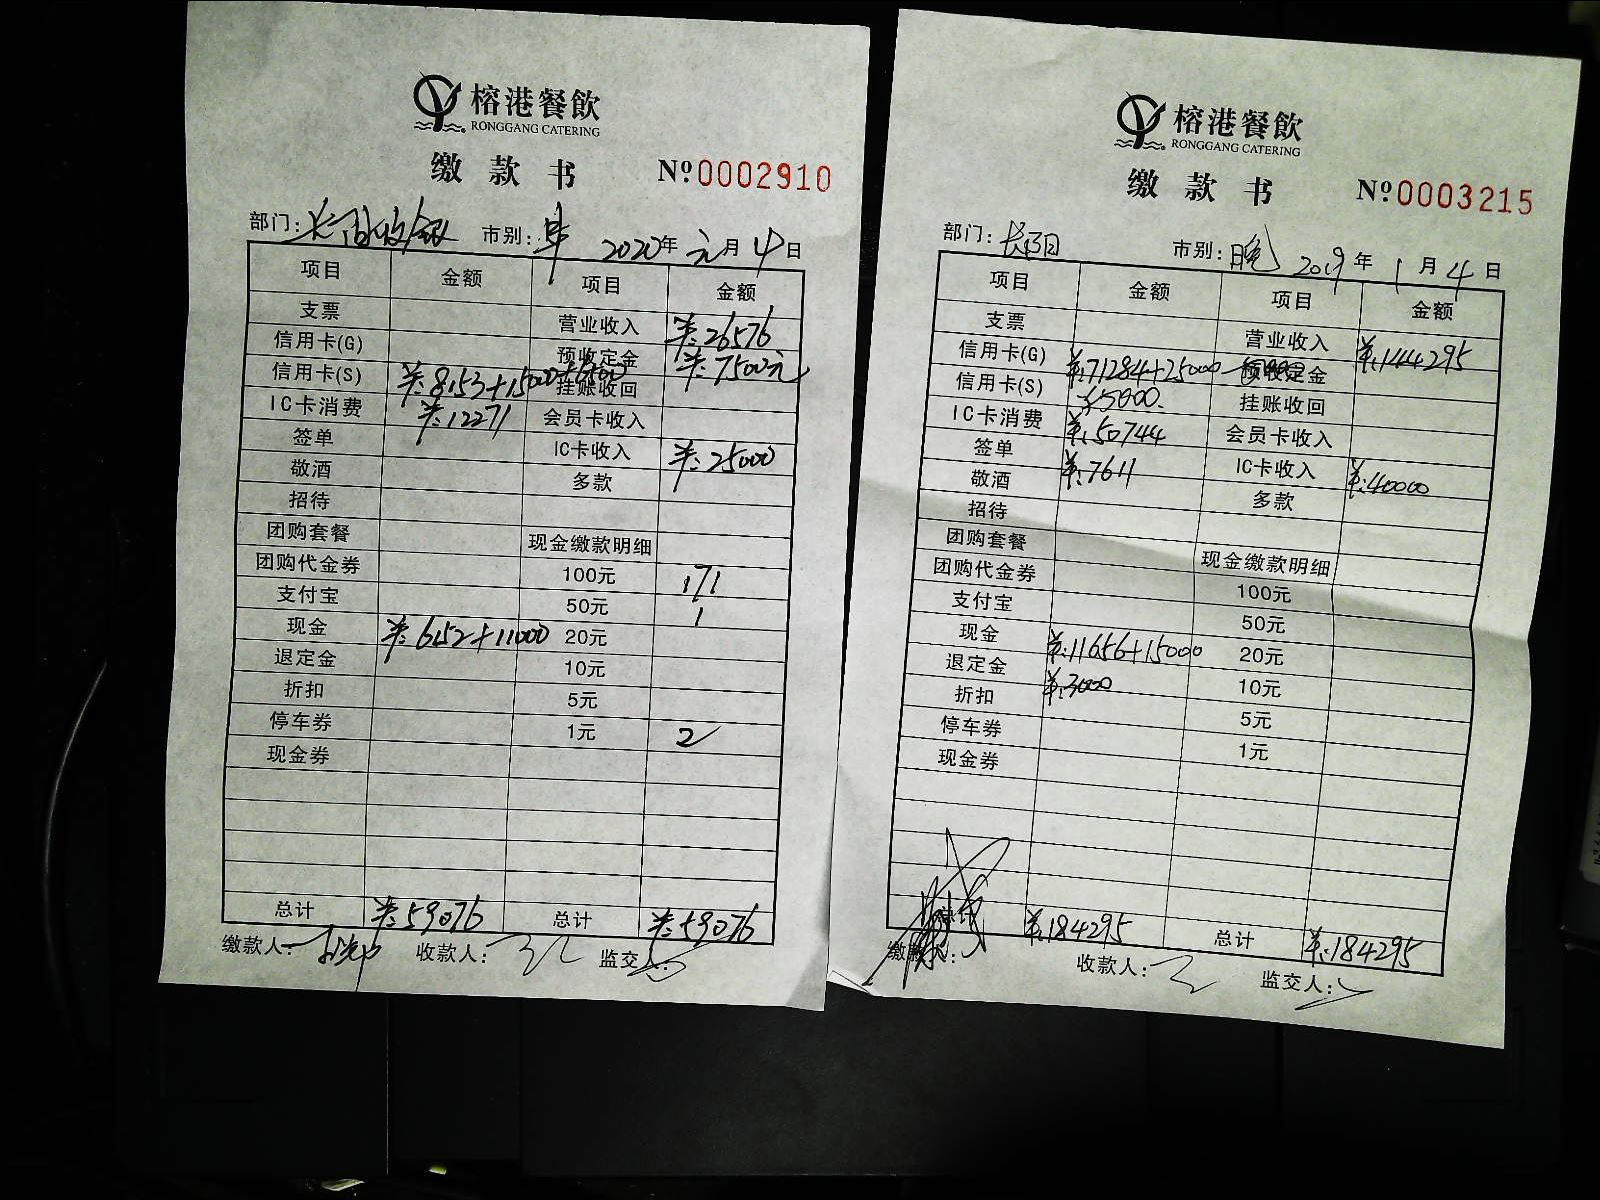 榕港餐飲
RONGGANG CATERING
缴款书 №0002910
部门: 市别:早 2020年元月4日
项目 金额 项目 金额
支票 营业收入 ¥:26576
信用卡(G) 预收定金 ¥:7500元
信用卡(S) ¥:8153+15000+6500 挂账收回
IC卡消费 ¥:12271 会员卡收入
签单 IC卡收入 ¥:25000
敬酒 多款
招待
团购套餐 现金缴款明细
团购代金券 100元 171
支付宝 50元 1
现金 ¥:6152+11000 20元
退定金 10元
折扣 5元
停车券 1元 2
现金券
总计 ¥:59076 总计 ¥:59076
缴款人: 收款人: 监交人:
榕港餐飲
RONGGANG CATERING
缴款书 №0003215
部门:长阳 市别:晚 2019年1月4日
项目 金额 项目 金额
支票 营业收入 ¥:144295
信用卡(G) ¥:71284+25000 预收定金
信用卡(S) ¥5000. 挂账收回
IC卡消费 ¥:50744 会员卡收入
签单 ¥:7611 IC卡收入 ¥:40000
敬酒 多款
招待
团购套餐 现金缴款明细
团购代金券 100元
支付宝 50元
现金 ¥:11656+15000 20元
退定金 ¥:3000 10元
折扣 5元
停车券 1元
现金券
总计 ¥:184295 总计 ¥:184295
缴款人: 收款人: 监交人: